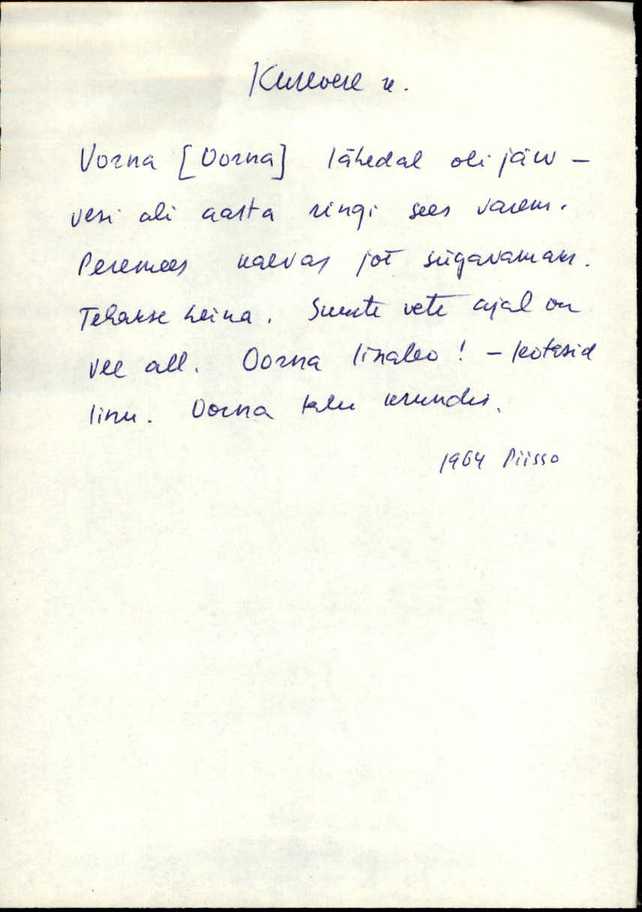 Kurevere k.
Vorna [Oorna] lähedal oli järv –
vesi oli aasta ringi sees varem.
Peremees kaevas jõe sügavamaks.
Tehakse heina. Suurte vete ajal on
vee all. Oorna linaleo! – leotasid
linu. Oorna talu krundis.
1964 Piisso